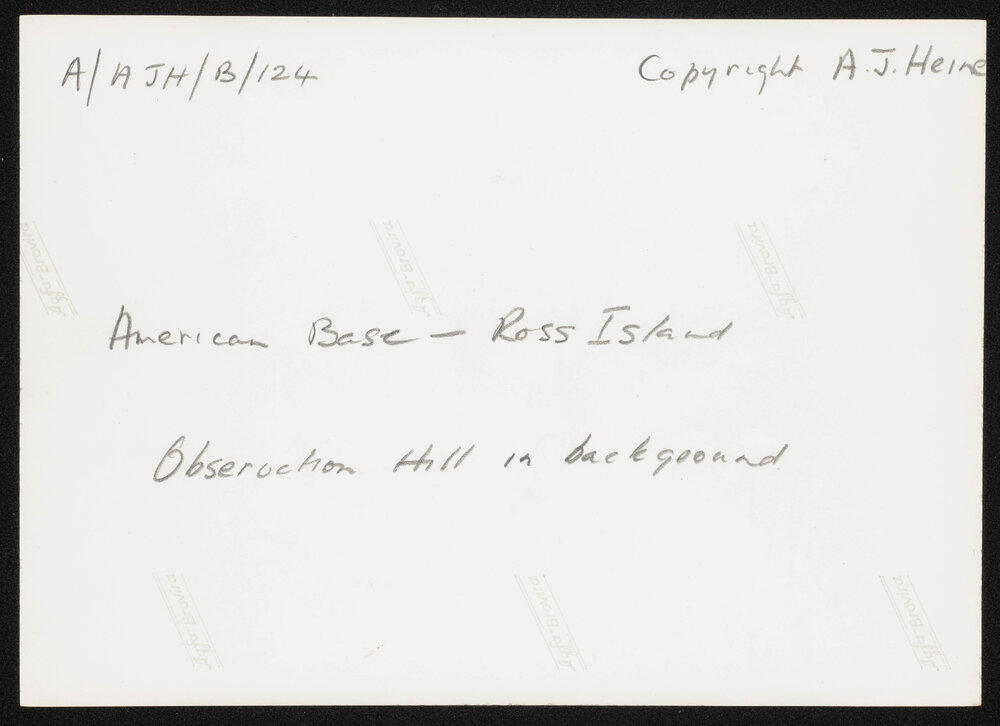 A/AJH/B/124
Copyright A.J. Heine
American Base – Ross Island
Observation Hill in background
Agfa-Brovira
Agfa-Brovira
Agfa-Brovira
Agfa-Brovira
Agfa-Brovira
Agfa-Brovira